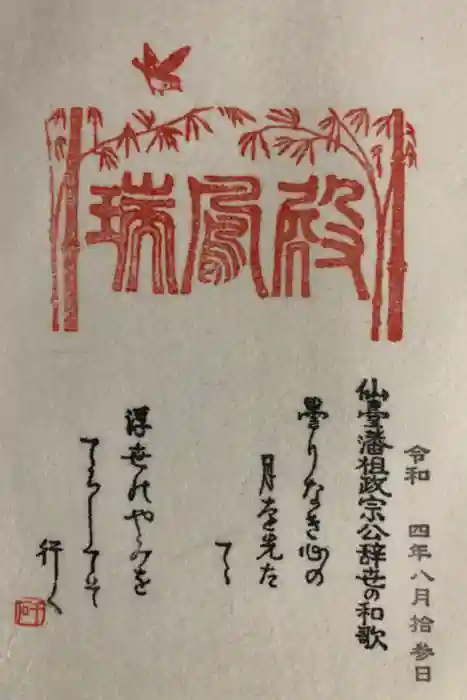 瑞鳳殿
令和 四年八月拾参日
仙臺藩祖政宗公辞世の和歌
曇りなき心の
月を先た
てゝ
浮世のやみを
てらしてそ
行く